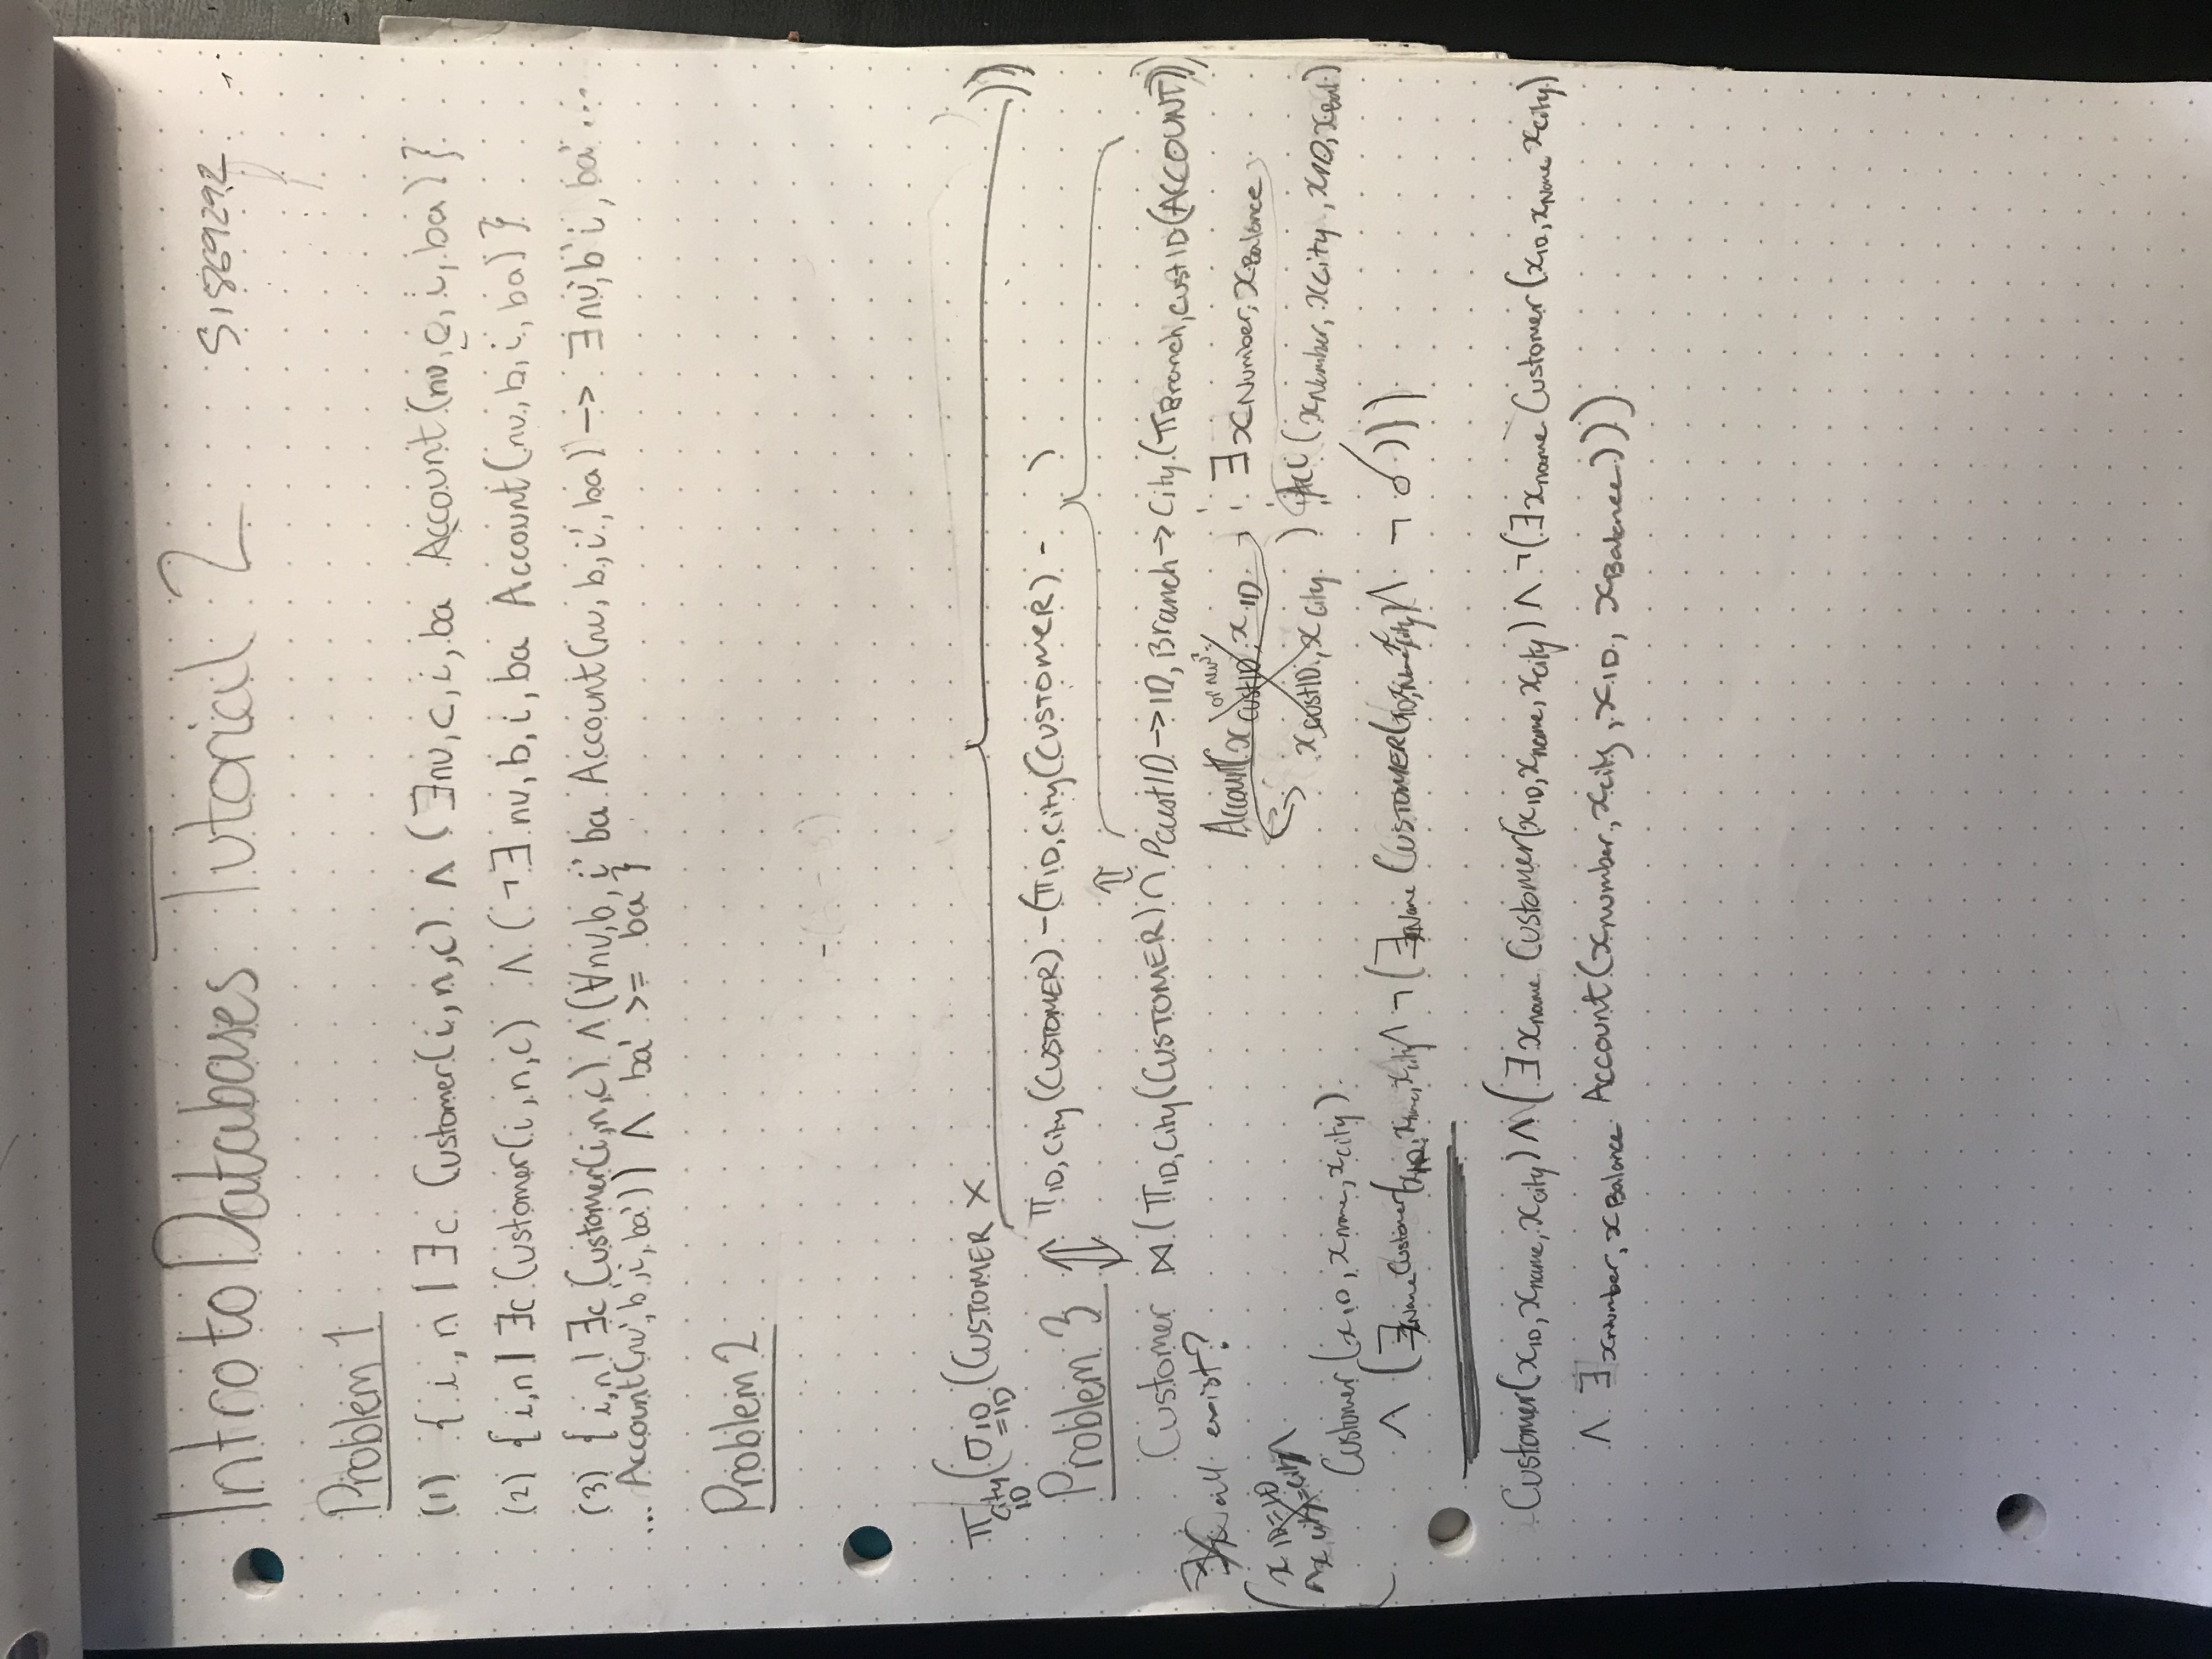 Intro to Databases Tutorial 2 S1869292
Problem 1
(1) { i, n | ∃c Customer(i, n, c) ∧ (∃nu, c, i, ba Account(nu, c, i, ba) }
(2) { i, n | ∃c Customer(i, n, c) ∧ (¬∃ nu, b, i, ba Account(nu, b, i, ba) }
(3) { i, n | ∃c Customer(i, n, c) ∧ (∀nu, b, i' ba Account(nu, b, i', ba) → ∃ nu', b' i, ba' ...
... Account(nu', b', i, ba')) ∧ ba' >= ba }
Problem 2
π City ID (σ ID =ID (CUSTOMER ×
))
π ID, City (CUSTOMER) - (π ID, City (CUSTOMER) - )
Problem 3
Customer ⋈ (π ID, City (CUSTOMER) ∩ ρ custID → ID, Branch → City (π Branch, custID (ACCOUNT)))
will exist?
Account(x custID, x ID or new? : ∃ x Number, x Balance
x ID = ID
∧ x City = City ∧
x custID, x City ) Acc (x Number, x City, x ID, x Bal)
Customer (x ID, x name, x City)
∧ (∃ x Name Customer(x ID, x name, x City) ∧ ¬ (∃ x Name CUSTOMER(x ID, x Name, x City) ∧ ¬ )))
Customer(x ID, x name, x City) ∧ (∃ x name Customer(x ID, x name, x City) ∧ ¬(∃ x name Customer (x ID, x Name x City)
∧ ∃ x number, x Balance Account(x number, x City, x ID, x Balance)))